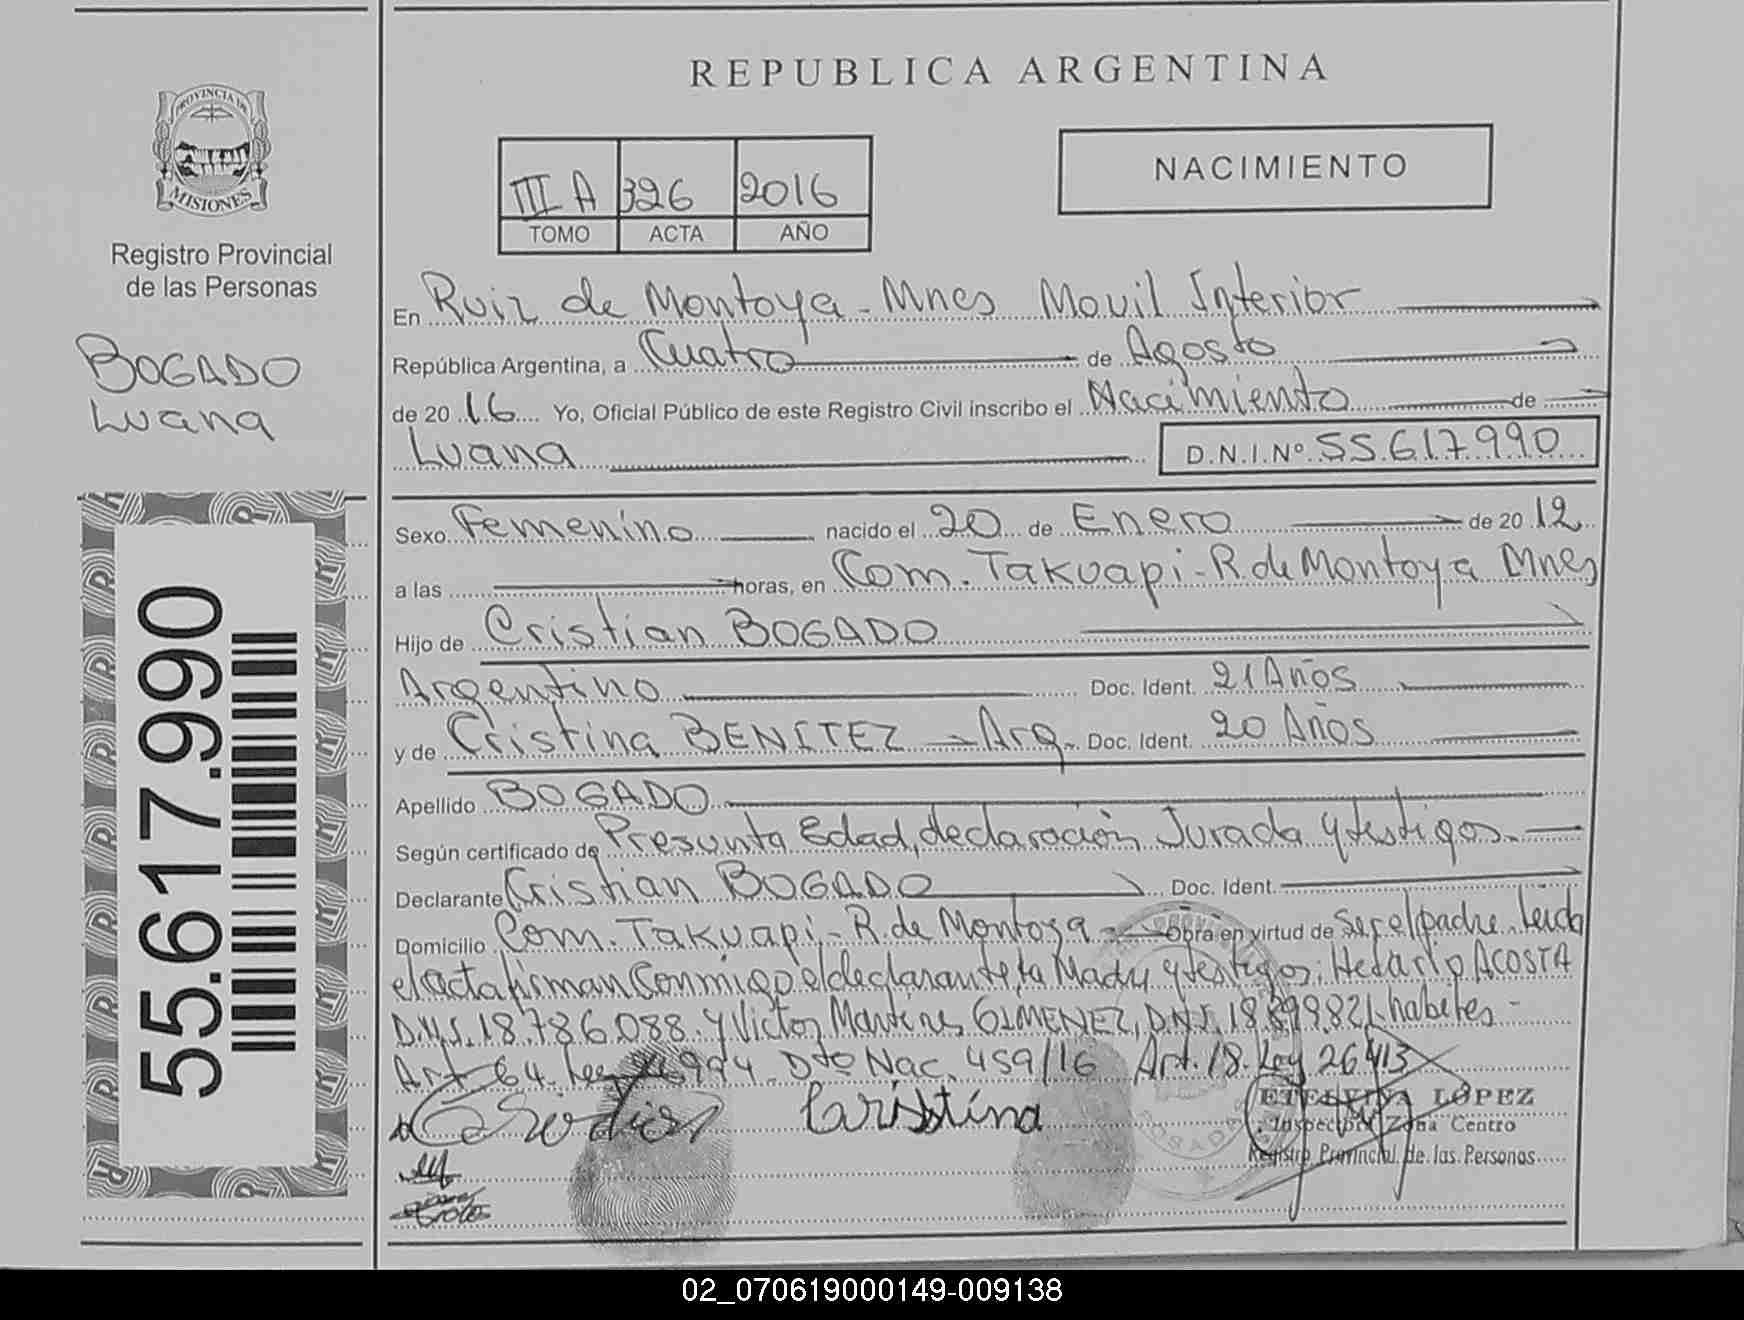 REPUBLICA ARGENTINA
PROVINCIA DE
MISIONES
Registro Provincial
de las Personas
BOGADO
Luana
55.617.990
III A 326 2016
TOMO ACTA AÑO
NACIMIENTO
En Ruiz de Montoya - Mnes Movil Interior
República Argentina, a Cuatro de Agosto
de 20 16 Yo, Oficial Público de este Registro Civil inscribo el Nacimiento de
Luana D.N.I.Nº 55.617.990
Sexo Femenino nacido el 20 de Enero de 20 12
a las horas, en Com. Takuapi - R. de Montoya Mnes
Hijo de Cristian BOGADO
Argentino Doc. Ident. 21 Años
y de Cristina BENITEZ - Arg. Doc. Ident. 20 Años
Apellido BOGADO
Según certificado de Presunta Edad, declaración Jurada y testigos.-
Declarante Cristian BOGADO Doc. Ident.
Domicilio Com. Takuapi - R. de Montoya - Obra en virtud de ser el padre. Leida
el acta firman Conmigo el declarante, la Madre y testigos: ACOSTA
D.N.I. 18.786.088. y Victor Martines GIMENEZ, D.N.I. 18.899.821. habiles -
Art. 64. Ley 26994. Dto Nac. 459/16 Art. 18. Ley 26.413
Cristina
ETELVINA LOPEZ
Inspectora Zona Centro
Registro Provincial de las Personas
02_070619000149-009138